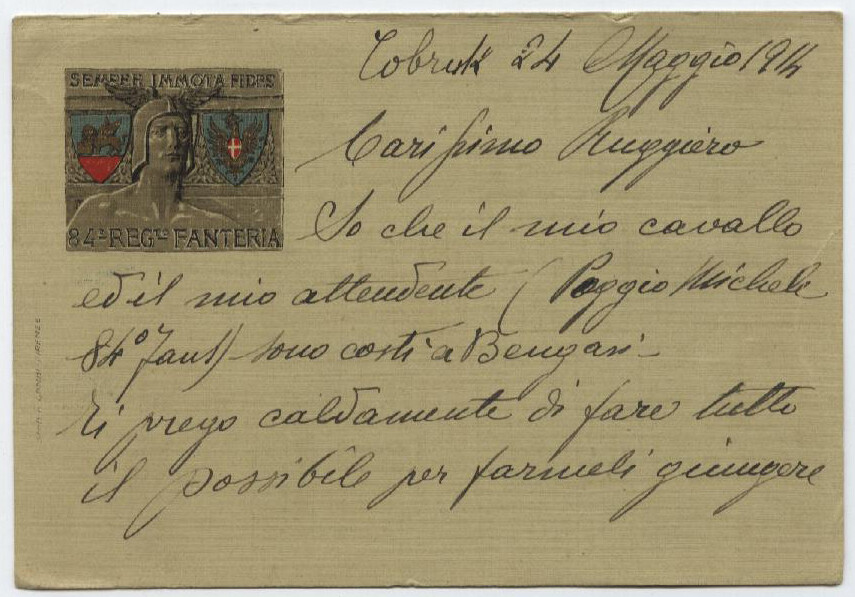 Tobruk 24 Maggio 1914
SEMPER IMMOTA FIDES
84º REGTO FANTERIA
Carissimo Ruggiero
So che il mio cavallo
ed il mio attendente (Poggio Michele
84º Fant) sono costì a Bengasi -
Ti prego caldamente di fare tutto
il possibile per farmeli giungere